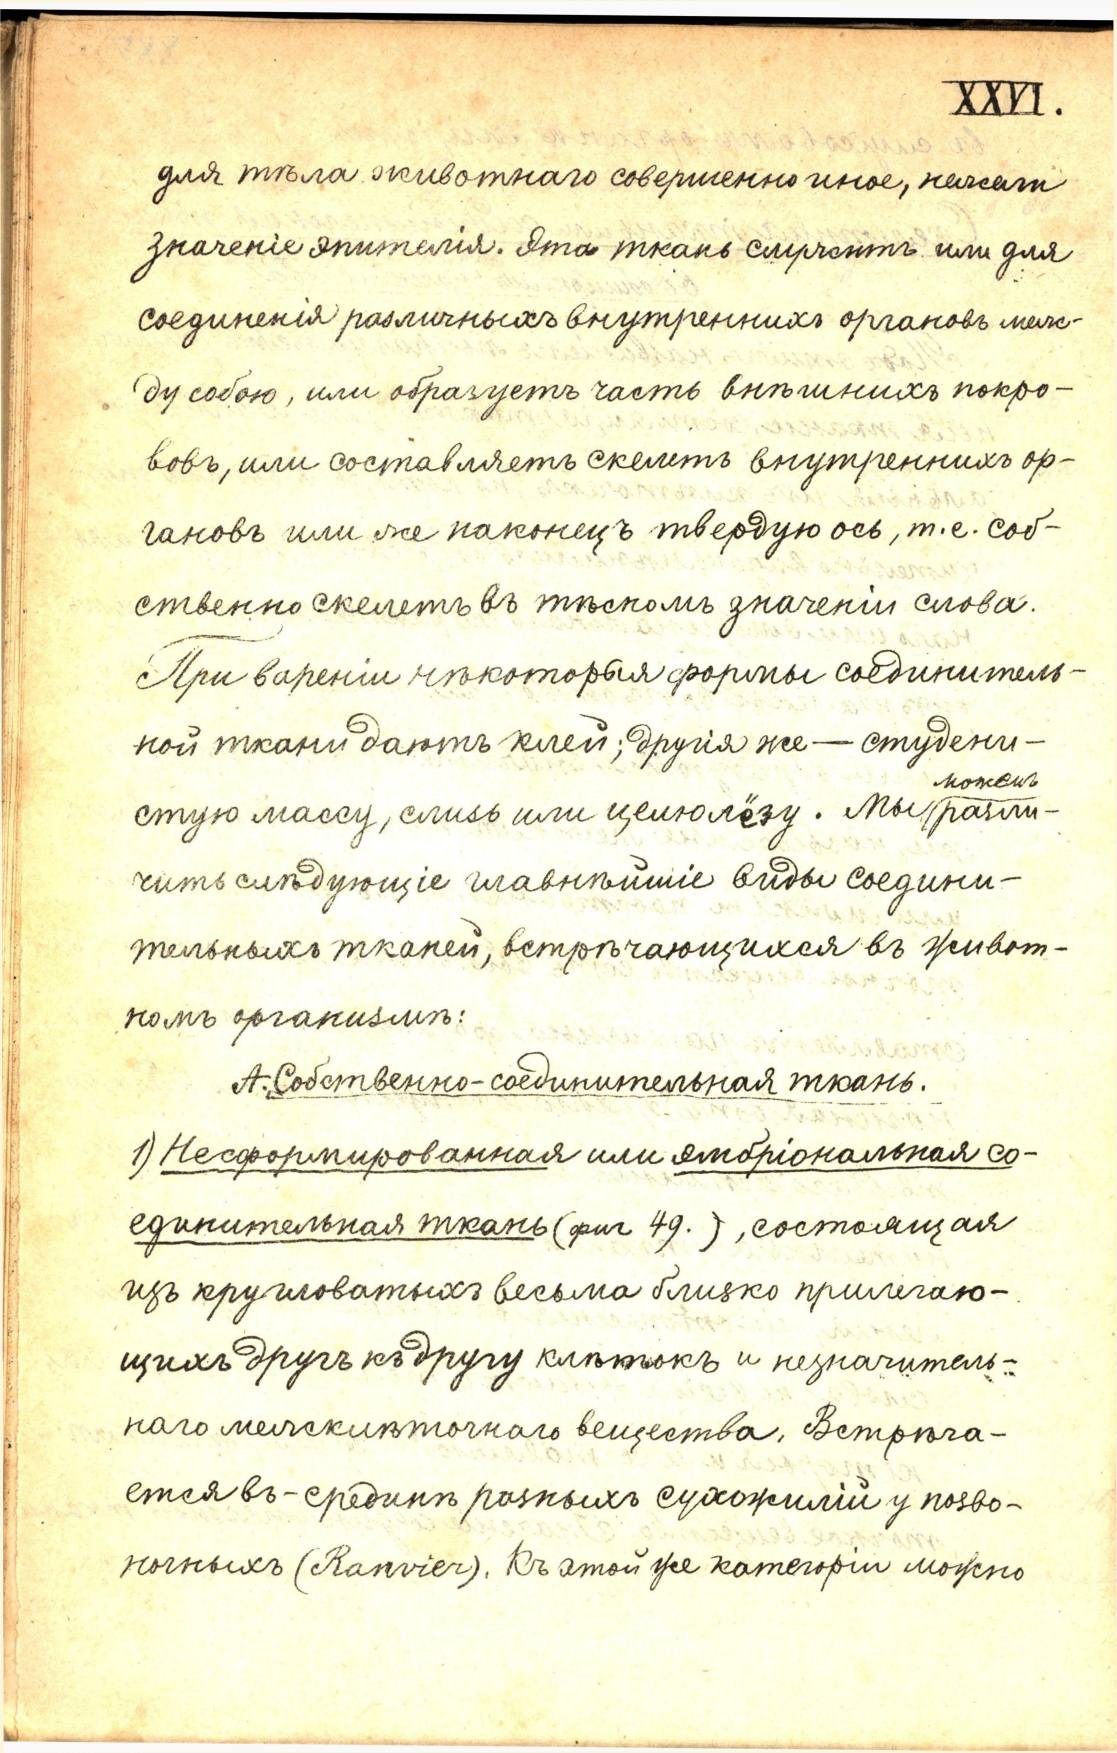 XXVI.
для тѣла животнаго совершенно иное, нежели
значеніе эпителія. Эта ткань служитъ или для
соединенія различныхъ внутреннихъ органовъ меж-
ду собою, или образуетъ часть внѣшнихъ покро-
вовъ, или составляетъ скелетъ внутреннихъ ор-
гановъ или же наконецъ твердую ось, т.е. соб-
ственно скелетъ въ тѣсномъ значеніи слова.
При вареніи нѣкоторыя формы соединитель-
ной ткани даютъ клей; другія же — студени-
стую массу, слизь или целюлёзу. Мы можемъ разли-
чить слѣдующіе главнѣйшіе виды соедини-
тельныхъ тканей, встрѣчающихся въ живот-
номъ организмѣ:
А. Собственно-соединительная ткань.
1) Несформированная или эмбріональная со-
единительная ткань (фиг 49.), состоящая
изъ кругловатыхъ весьма близко прилегаю-
щихъ другъ къ другу клѣтокъ и незначитель-
наго межклѣточнаго вещества. Встрѣча-
ется въ-срединѣ разныхъ сухожилій у позво-
ночныхъ (Ranvier). Къ этой же категоріи можно